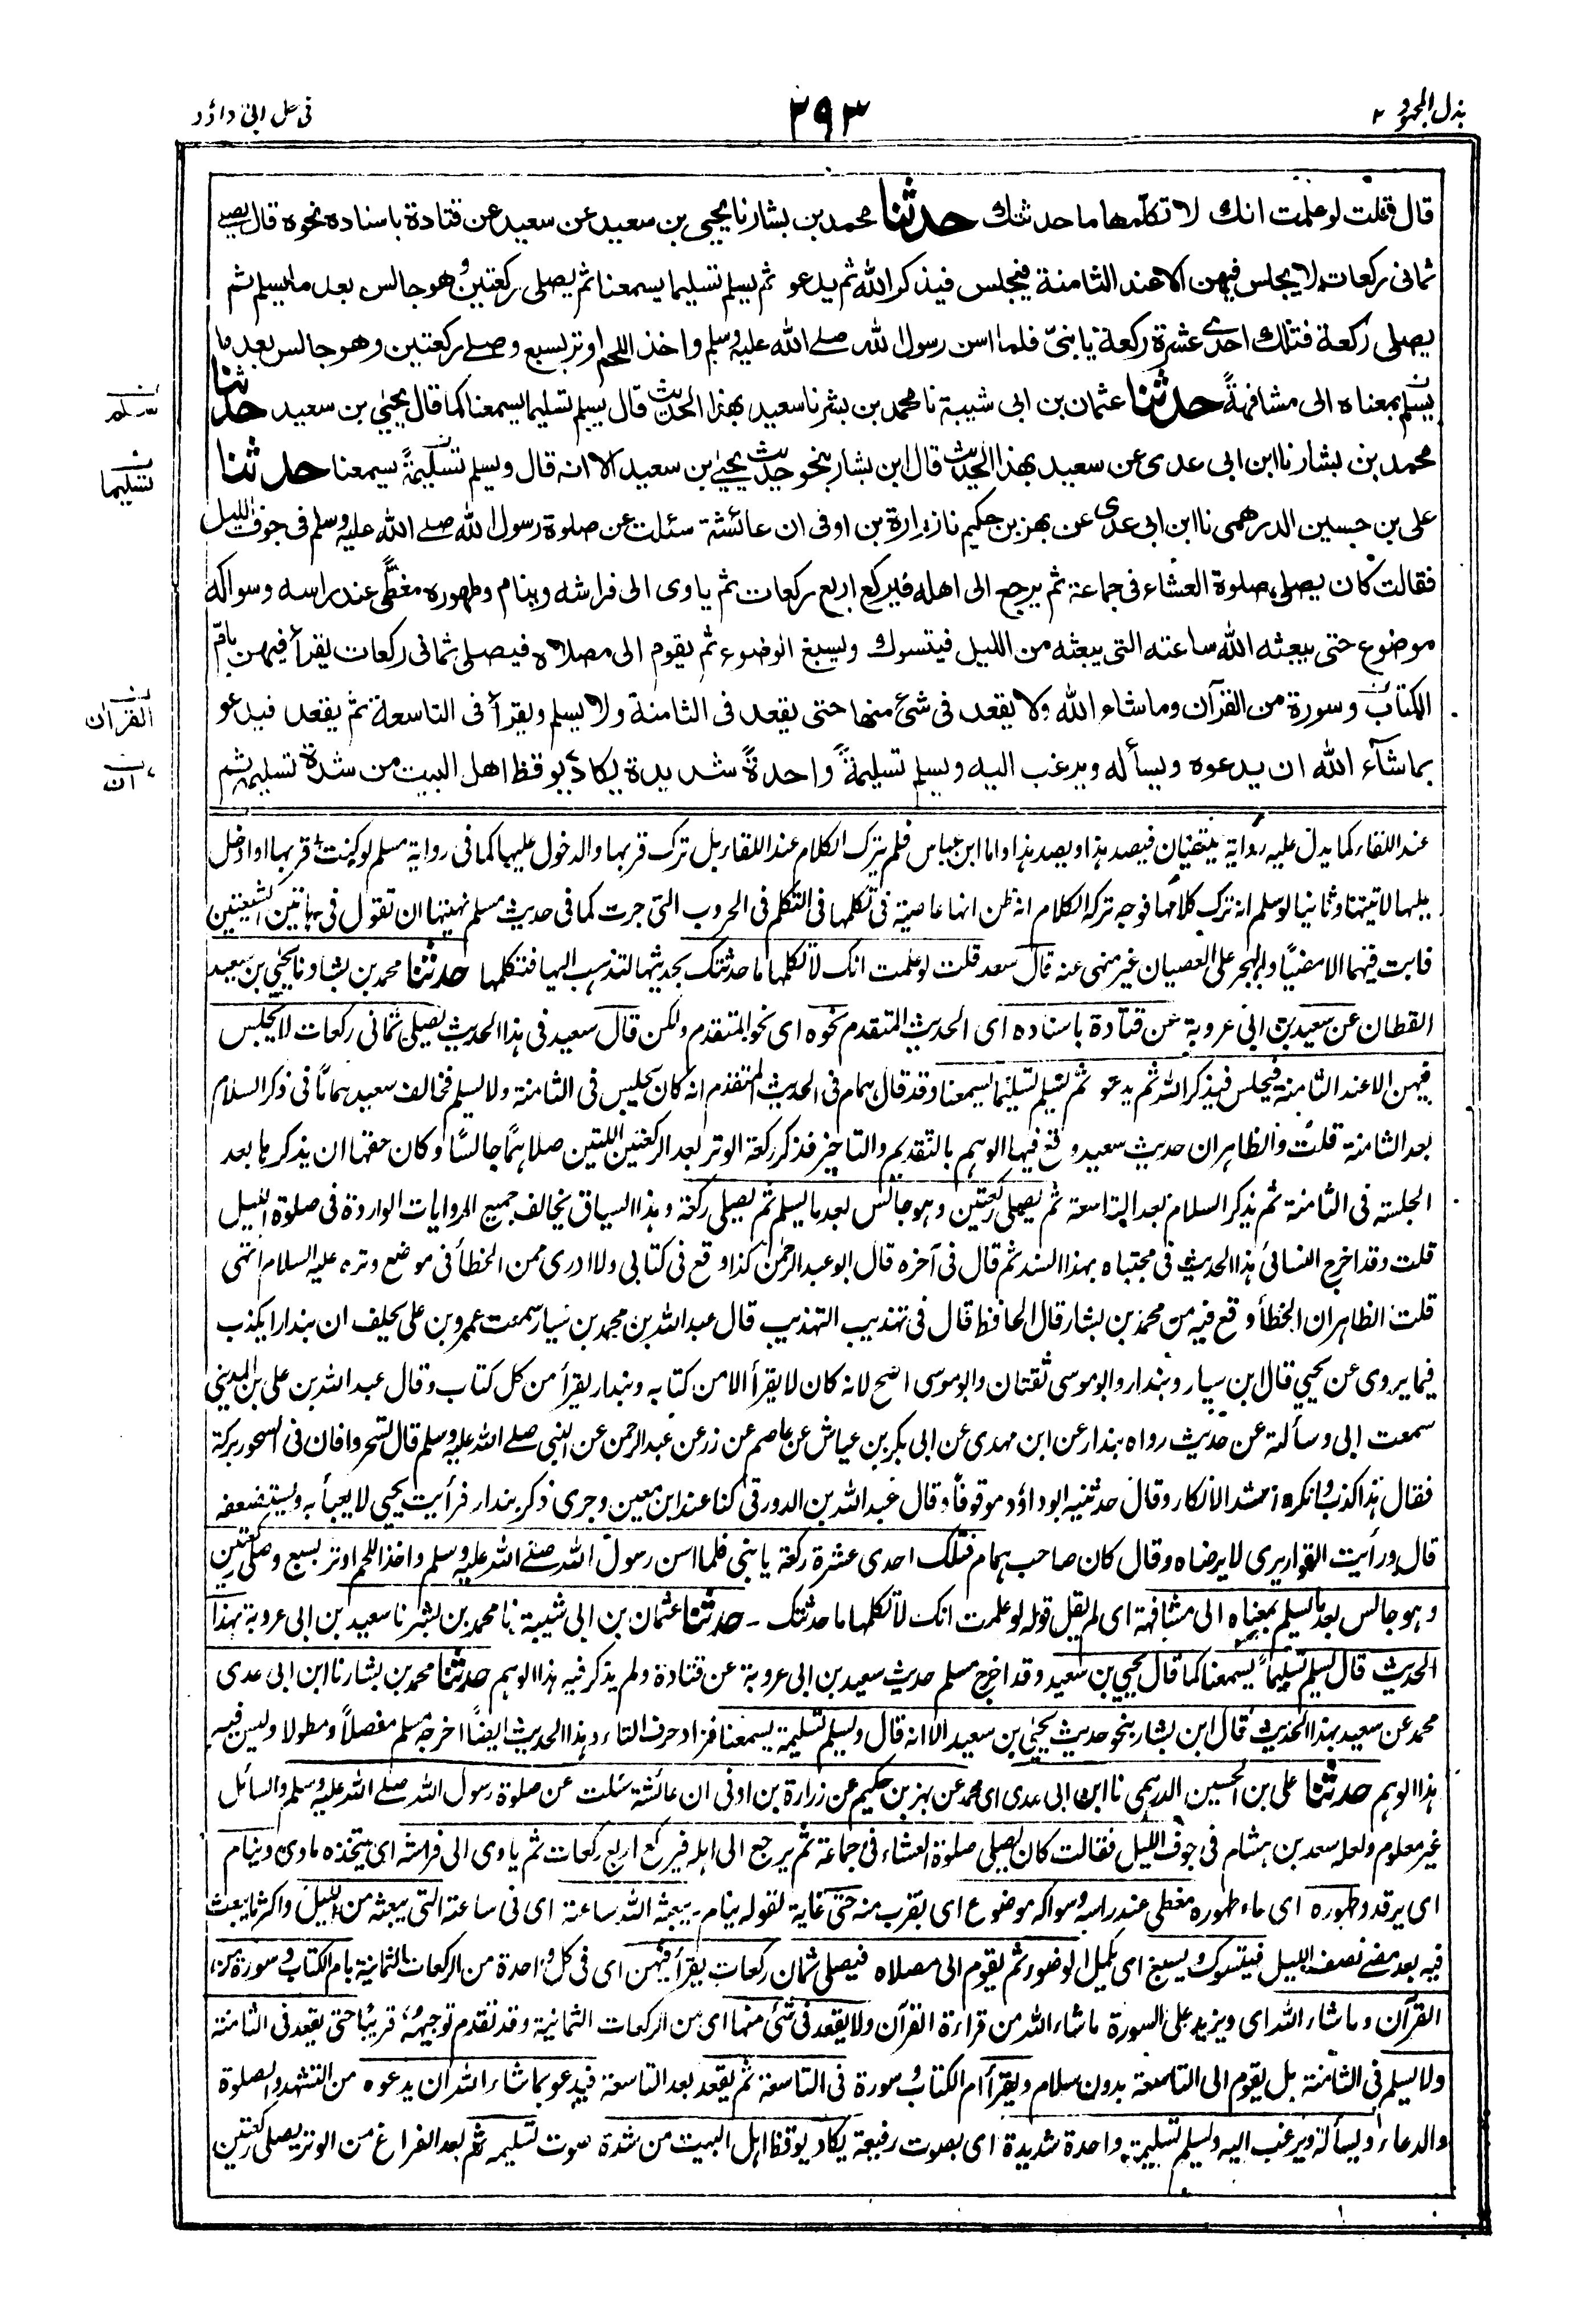 بذل المجهود ٢
٢٩٣
فى حل ابى داؤد
قال قلت لو علمت انك لا تكلمها ما حدثتك حدثنا محمد بن بشار نا يحيى بن سعيد عن سعيد عن قتادة باسناده نحوه قال يصلى
ثمانى ركعات لا يجلس فيهن الا عند الثامنة فيجلس فيذكر الله ثم يدعو ثم يسلم تسليما يسمعنا ثم يصلى ركعتين وهو جالس بعد ما يسلم ثم
يصلى ركعة فتلك احدى عشرة ركعة يا بنىّ فلما اسن رسول الله صلے الله عليه وسلم واخذ اللحم اوتر بسبع وصلے ركعتين وهو جالس بعد ما
يسلم بمعناه الى مشافهةً حدثنا عثمان بن ابى شيبة نا محمد بن بشر نا سعيد بهذا الحديث قال يسلم تسليما يسمعنا كما قال يحيى بن سعيد حدثنا
سلم
محمد بن بشار نا ابن ابى عدى عن سعيد بهذا الحديث قال ابن بشار بنحو حديث يحيى بن سعيد الا انه قال ويسلم تسليمةً يسمعنا حدثنا
تسليما
على بن حسين الدرهمى نا ابن ابى عدى عن بهز بن حكيم نا زرارة بن اوفى ان عائشة سئلت عن صلوة رسول الله صلے الله عليه وسلم فى جوف الليل
فقالت كان يصلى صلوة العشاء فى جماعة ثم يرجع الى اهله فيركع اربع ركعات ثم ياوى الى فراشه وينام وطهوره مغطًّى عند راسه وسواكه
موضوع حتى يبعثه الله ساعته التى يبعثه من الليل فيتسوك ويسبغ الوضوء ثم يقوم الى مصلاه فيصلى ثمانى ركعات يقرأ فيهن بام
الكتاب وسورة من القرآن وما شاء الله ولا يقعد فى شئ منها حتى يقعد فى الثامنة ولا يسلم ويقرأ فى التاسعة ثم يقعد فيدعو
القران
بما شآء الله ان يدعوه ويسأله ويرغب اليه ويسلم تسليمةً واحدةً شديدة يكاد يوقظ اهل البيت من شدة تسليمه ثم
انه
عند اللقاء كما يدل عليه رواية يلتقيان فيصد هذا ويصد هذا واما ابن عباس فلم يترك الكلام عند اللقاء بل ترك قربها والدخول عليها كما فى رواية مسلم لو كنت اقربها او ادخل
عليها لاتيتها وثانيا لو سلم انه ترك كلامها فوجه تركه الكلام انه ظن انها عاصية فى تكلمها فى التكلم فى الحروب التى جرت كما فى حديث مسلم نهيتها ان تقول فى هاتين الشيعتين
فابت فيهما الا مضيًا والهجر على العصيان غير منهى عنه قال سعد قلت لو علمت انك لا تكلمها ما حدثتك بحديثها لتذهب اليها فتكلمها حدثنا محمد بن بشار نا يحيى بن سعيد
القطان عن سعيد بن ابى عروبة عن قتادة باسناده اى الحديث المتقدم نحوه اى نحو المتقدم ولكن قال سعيد فى هذا الحديث يصلى ثمانى ركعات لا يجلس
فيهن الا عند الثامنة فيجلس فيذكر الله ثم يدعو ثم يسلم تسليما يسمعنا وقد قال همام فى الحديث المتقدم انه كان يجلس فى الثامنة ولا يسلم فخالف سعيد هماماً فى ذكر السلام
بعد الثامنة قلت والظاهر ان حديث سعيد وقع فيها الوهم بالتقديم والتاخير فذكر ركعة الوتر بعد الركعتين اللتين صلاهما جالسًا وكان حقها ان يذكر ها بعد
الجلسة فى الثامنة ثم يذكر السلام بعد التاسعة ثم يصلى ركعتين وهو جالس بعد ما يسلم ثم يصلى ركعة وهذا السياق يخالف جميع الروايات الواردة فى صلوة الليل
قلت وقد اخرج النسائى هذا الحديث فى مجتباه بهذا السند ثم قال فى آخره قال ابو عبد الرحمن كذا وقع فى كتابى ولا ادرى ممن الخطأ فى موضع وتره عليه السلام انتهى
قلت الظاهر ان الخطأ وقع فيه من محمد بن بشار قال الحافظ قال فى تهذيب التهذيب قال عبد الله بن محمد بن سيار سمعت عمرو بن على يحلف ان بندارا يكذب
فيما يروى عن يحيى قال ابن سيار وبندار وابو موسى ثقتان وابو موسى اصح لانه كان لا يقرأ الا من كتابه وبندار يقرأ من كل كتاب وقال عبد الله بن على بن المدينى
سمعت ابى وسألته عن حديث رواه بندار عن ابن مهدى عن ابى بكر بن عياش عن عاصم عن زر عن عبد الرحمن عن النبى صلے الله عليه وسلم قال تسحروا فان فى السحور بركة
فقال هذا كذب وانكره اشد الانكار وقال حدثنيه ابو داؤد موقوفاً وقال عبد الله بن الدورقى كنا عند ابن معين وجرى ذكر بندار فرأيت يحيى لا يعبأ به ويستضعفه
قال ورأيت القواريرى لا يرضاه وقال كان صاحب حمام فتلك احدى عشرة ركعة يا بنى فلما اسن رسول الله صلے الله عليه وسلم واخذ اللحم اوتر بسبع وصلى ركعتين
وهو جالس بعد ما يسلم بمعناه الى مشافهة اى لم يقل قوله لو علمت انك لا تكلمها ما حدثتك ۔ حدثنا عثمان بن ابى شيبة نا محمد بن بشر نا سعيد بن ابى عروبة بهذا
الحديث قال يسلم تسليماً يسمعنا كما قال يحيى بن سعيد وقد اخرج مسلم حديث سعيد بن ابى عروبة عن قتادة ولم يذكر فيه هذا الوهم حدثنا محمد بن بشار نا ابن ابى عدى
محمد عن سعيد بهذا الحديث قال ابن بشار بنحو حديث يحيى بن سعيد الا انه قال ويسلم تسليمة يسمعنا فزاد حرف التاء وهذا الحديث ايضاً اخرجه مسلم مفصلاً ومطولا وليس فيه
هذا الوهم حدثنا على بن الحسين الدرهمى نا ابن ابى عدى اى محمد عن بهز بن حكيم عن زرارة بن اوفى ان عائشة سئلت عن صلوة رسول الله صلے الله عليه وسلم والسائل
غير معلوم ولعله سعد بن هشام فى جوف الليل فقالت كان يصلى صلوة العشاء فى جماعة ثم يرجع الى اهله فيركع اربع ركعات ثم ياوى الى فراشه اى يتخذه ماوى وينام
اى يرقد وطهوره اى ماء طهوره مغطى عند راسه وسواكه موضوع اى بقرب منه حتى غاية لقوله ينام ۔ يبعثه الله ساعته اى فى ساعته التى يبعثه من الليل واكثر ما يبعث
فيه بعد مضے نصف الليل فيتسوك ويسبغ اى يكمل الوضوء ثم يقوم الى مصلاه فيصلى ثمان ركعات يقرأ فيهن اى فى كل واحدة من الركعات الثمانية بام الكتاب وسورة من
القرآن وما شاء الله اى ويزيد على السورة ما شاء الله من قراءة القرآن ولا يقعد فى شئ منها اى من الركعات الثمانية وقد تقدم توجيهه قريبًا حتى يقعد فى الثامنة
ولا يسلم فى الثامنة بل يقوم الى التاسعة بدون سلام ويقرأ ام الكتاب وسورة فى التاسعة ثم يقعد بعد التاسعة فيدعو بما شاء الله ان يدعوه من التشهد والصلوة
والدعاء ويسأله ويرغب اليه ويسلم تسليمة واحدة شديدة اى بصوت رفيعة يكاد يوقظ اهل البيت من شدة صوت تسليمه ثم بعد الفراغ من الوتر يصلى ركعتين